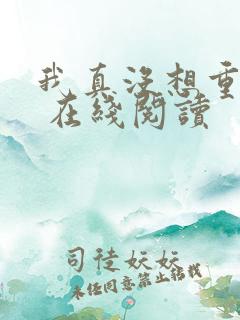 我真没想重
在线阅读
司徒妖妖
未经同意禁止转载